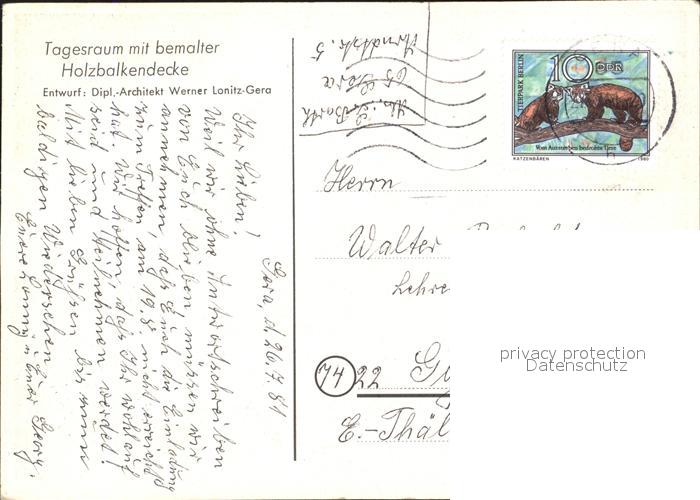 Tagesraum mit bemalter
Holzbalkendecke
Entwurf: Dipl.-Architekt Werner Lonitz-Gera
Gera, d. 26.7.81
Ihr Lieben!
Weil wir ohne Antwortschreiben
von Euch blieben, müssen wir
annehmen, daß Euch die Einladung
zum Treffen am 19.8. nicht erreicht
hat. Wir hoffen, daß Ihr wohlauf
seid und teilnehmen werdet!
Mit lieben Grüßen bis zum
baldigen Wiedersehen
Euer Georg.
65 Gera
Arndtstr. 5
TIERPARK BERLIN
10 DDR
Vom Aussterben bedrohte Tiere
KATZENBÄREN
1980
Herrn
Walter
74
22
E.-Thäl
privacy protection
Datenschutz